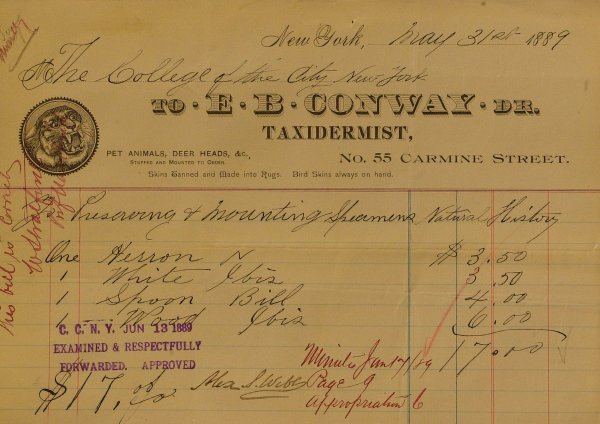 New York, May 31st 1889
The College of the City New York
TO · E · B · CONWAY · DR.
TAXIDERMIST,
PET ANIMALS, DEER HEADS, &c.,
STUFFED AND MOUNTED TO ORDER.
No. 55 CARMINE STREET.
Skins Tanned and Made into Rugs. Bird Skins always on hand.
Preserving & Mounting Specimens Natural History
One Herron $3.50
1 White Ibis 3.50
1 Spoon Bill 4.00
1 Wood Ibis 6.00
17.00
C. C. N. Y. JUN 13 1889
EXAMINED & RESPECTFULLY
FORWARDED. APPROVED
$17.00 Alex. S. Webb
Minutes Jun 17/89
Page 9
appropriation 6
This bill is correct